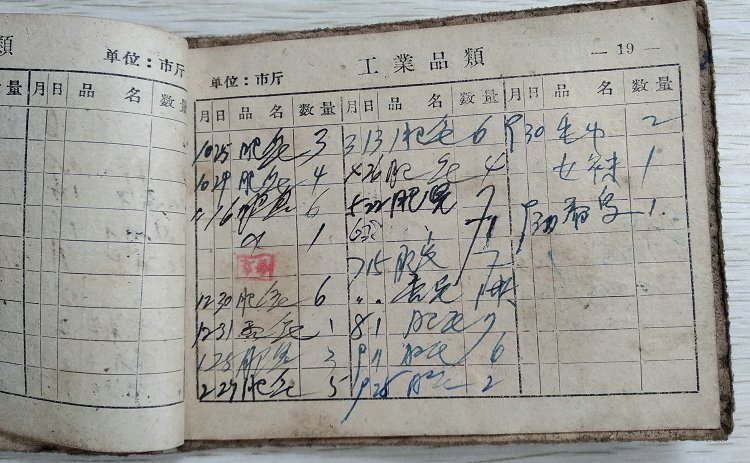 類
单位：市斤
量 月 日 品 名 数 量
工業品類
— 19 —
单位：市斤
月 日 品 名 数 量 月 日 品 名 数 量 月 日 品 名 数 量
10 25 肥皂 3 3 13 肥皂 6 9 30 毛巾 2
10 29 肥皂 4 4 26 肥皂 4 女袜 1
16 肥皂 6 5 22 肥皂 7 9 30 1
1
7 15 肥皂 7
12 30 肥皂 6 〃 〃 香皂
12 31 1 8 1 肥皂 7
1 28 肥皂 3 9 11 肥皂 6
2 29 肥皂 5 9 28 肥皂 2